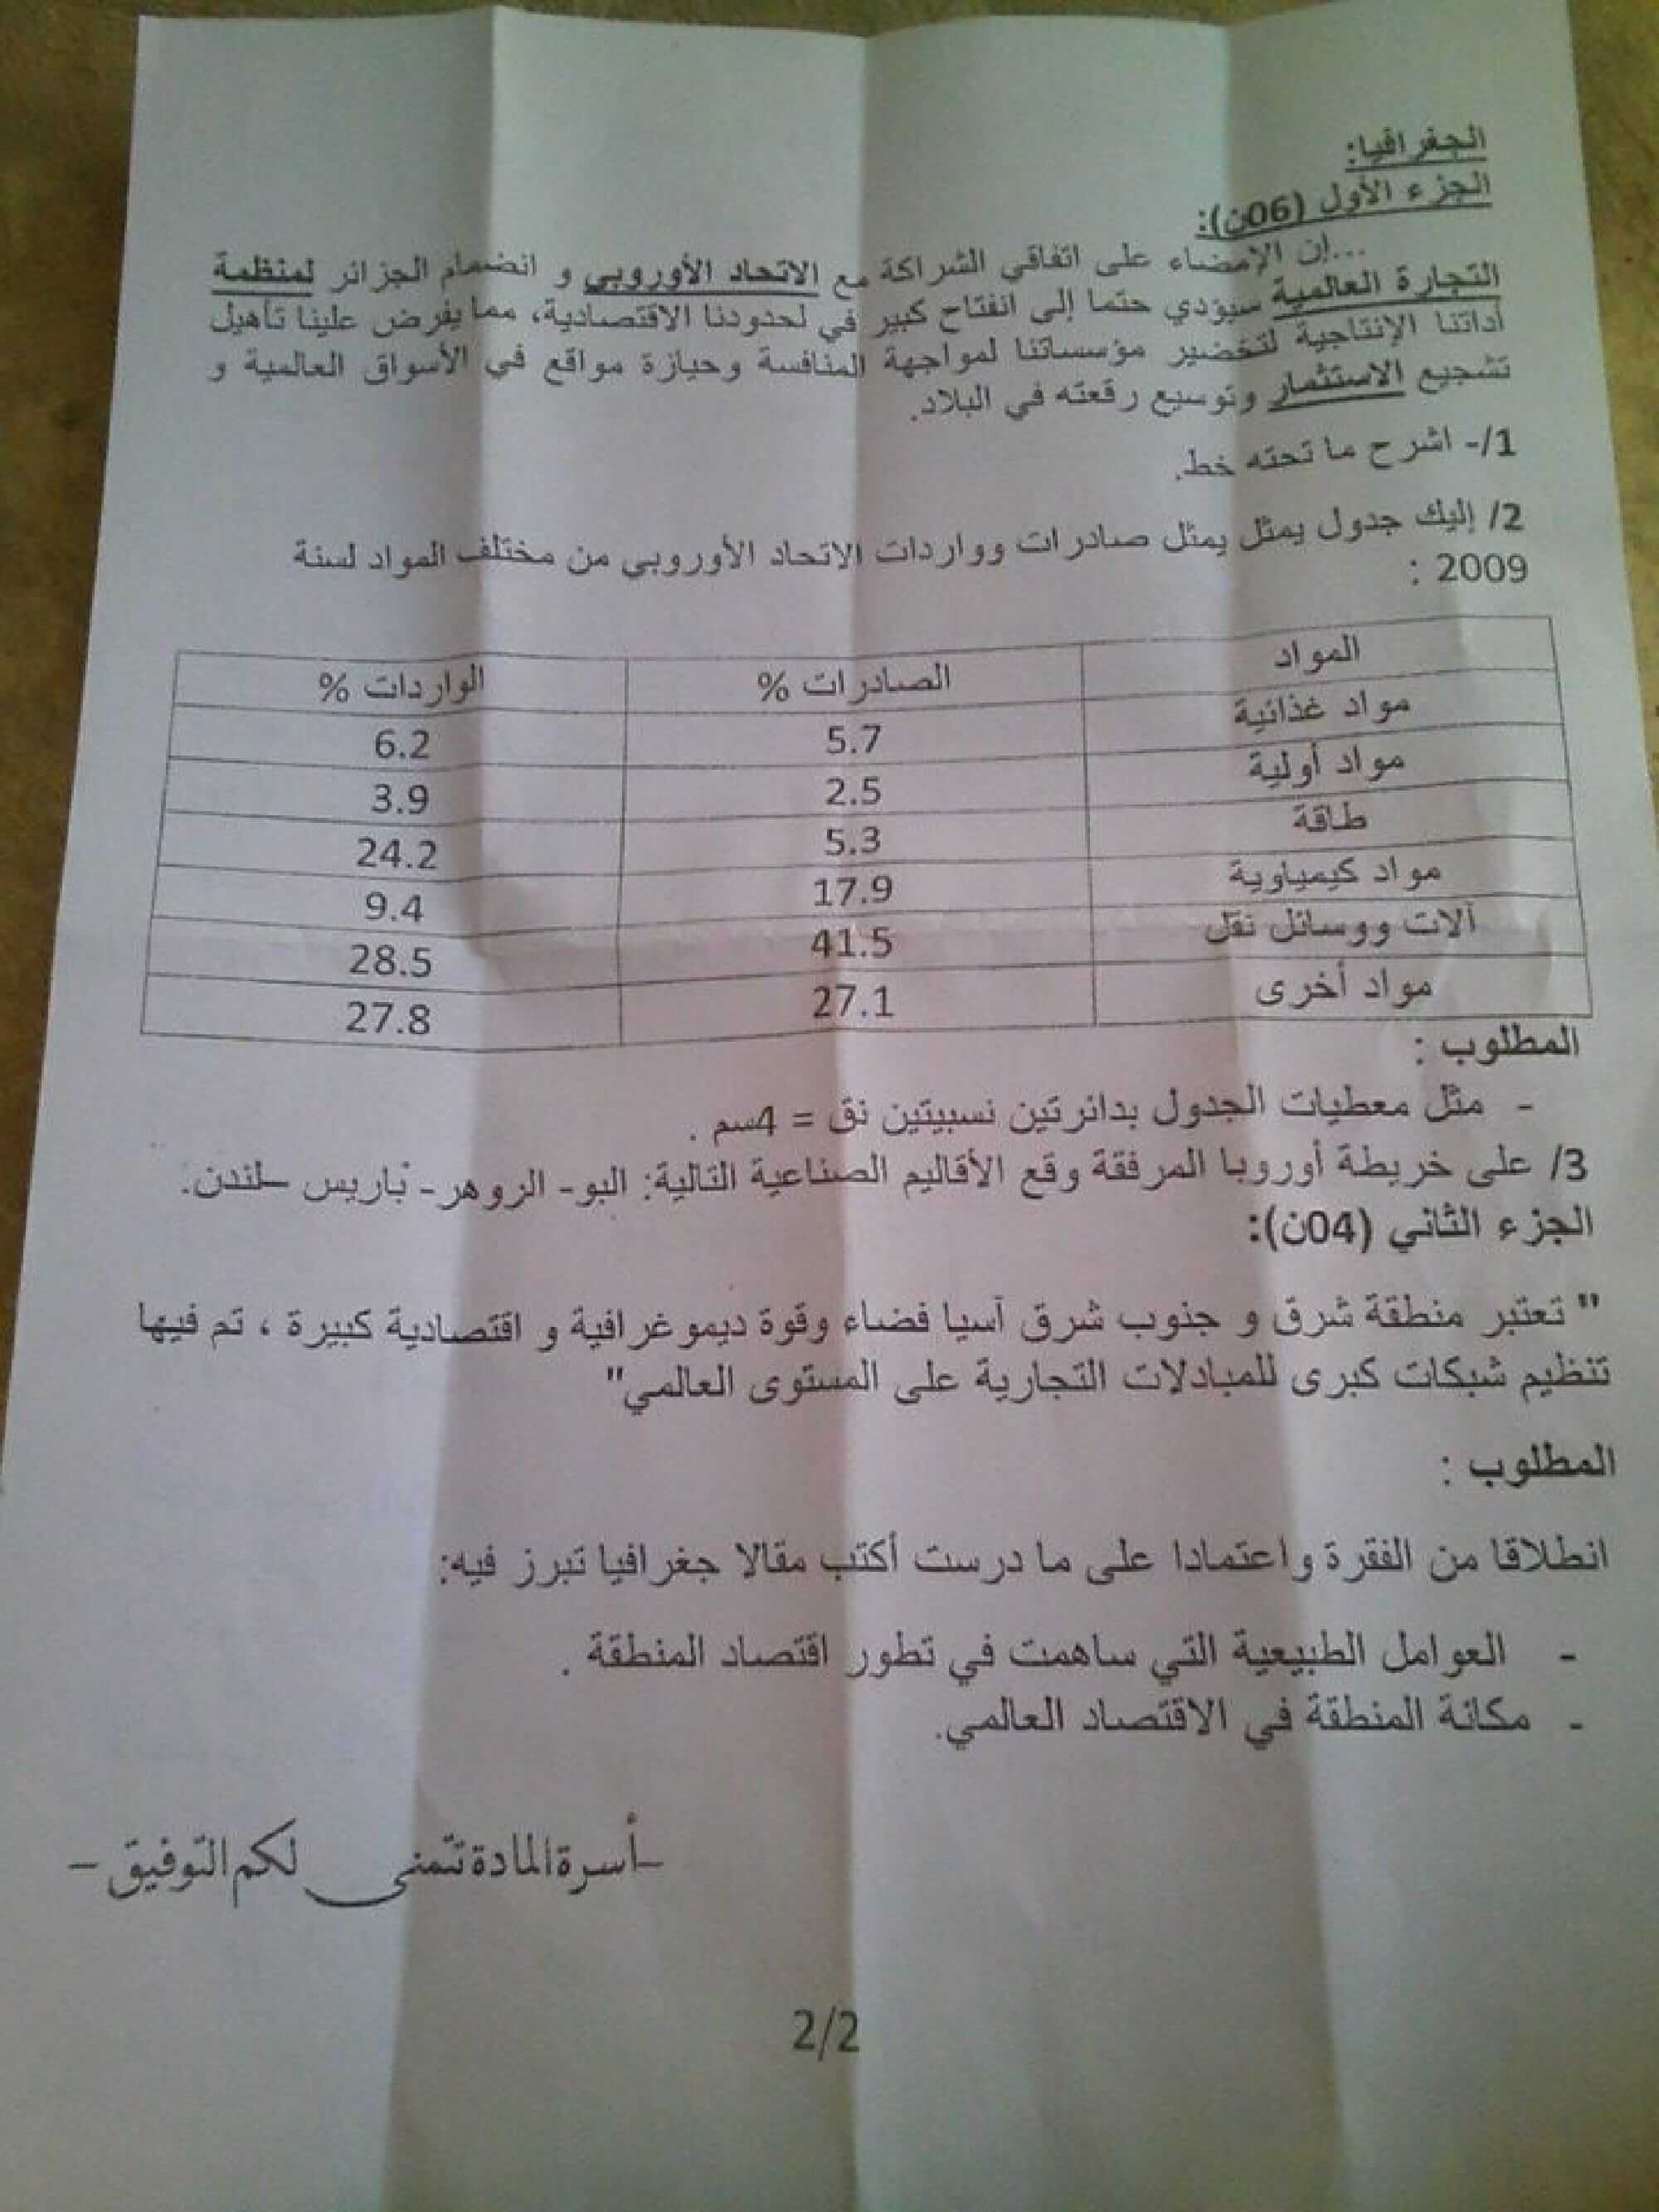 الجغرافيا:
الجزء الأول (06ن):
...إن الإمضاء على اتفاقي الشراكة مع الاتحاد الأوروبي و انضمام الجزائر لمنظمة
التجارة العالمية سيؤدي حتما إلى انفتاح كبير في لحدودنا الاقتصادية، مما يفرض علينا تأهيل
أداتنا الإنتاجية لتحضير مؤسساتنا لمواجهة المنافسة وحيازة مواقع في الأسواق العالمية و
تشجيع الاستثمار وتوسيع رقعته في البلاد.
1/- اشرح ما تحته خط.
2/ إليك جدول يمثل يمثل صادرات وواردات الاتحاد الأوروبي من مختلف المواد لسنة
2009 :
المواد الصادرات % الواردات %
مواد غذائية 5.7 6.2
مواد أولية 2.5 3.9
طاقة 5.3 24.2
مواد كيمياوية 17.9 9.4
آلات ووسائل نقل 41.5 28.5
مواد أخرى 27.1 27.8
المطلوب :
- مثل معطيات الجدول بدائرتين نسبيتين نق = 4سم .
3/ على خريطة أوروبا المرفقة وقع الأقاليم الصناعية التالية: البو- الروهر- باريس –لندن.
الجزء الثاني (04ن):
" تعتبر منطقة شرق و جنوب شرق آسيا فضاء وقوة ديموغرافية و اقتصادية كبيرة ، تم فيها
تنظيم شبكات كبرى للمبادلات التجارية على المستوى العالمي"
المطلوب :
انطلاقا من الفقرة واعتمادا على ما درست أكتب مقالا جغرافيا تبرز فيه:
- العوامل الطبيعية التي ساهمت في تطور اقتصاد المنطقة .
- مكانة المنطقة في الاقتصاد العالمي.
–أسرة المادة تتمنى لكم التوفيق–
2/2